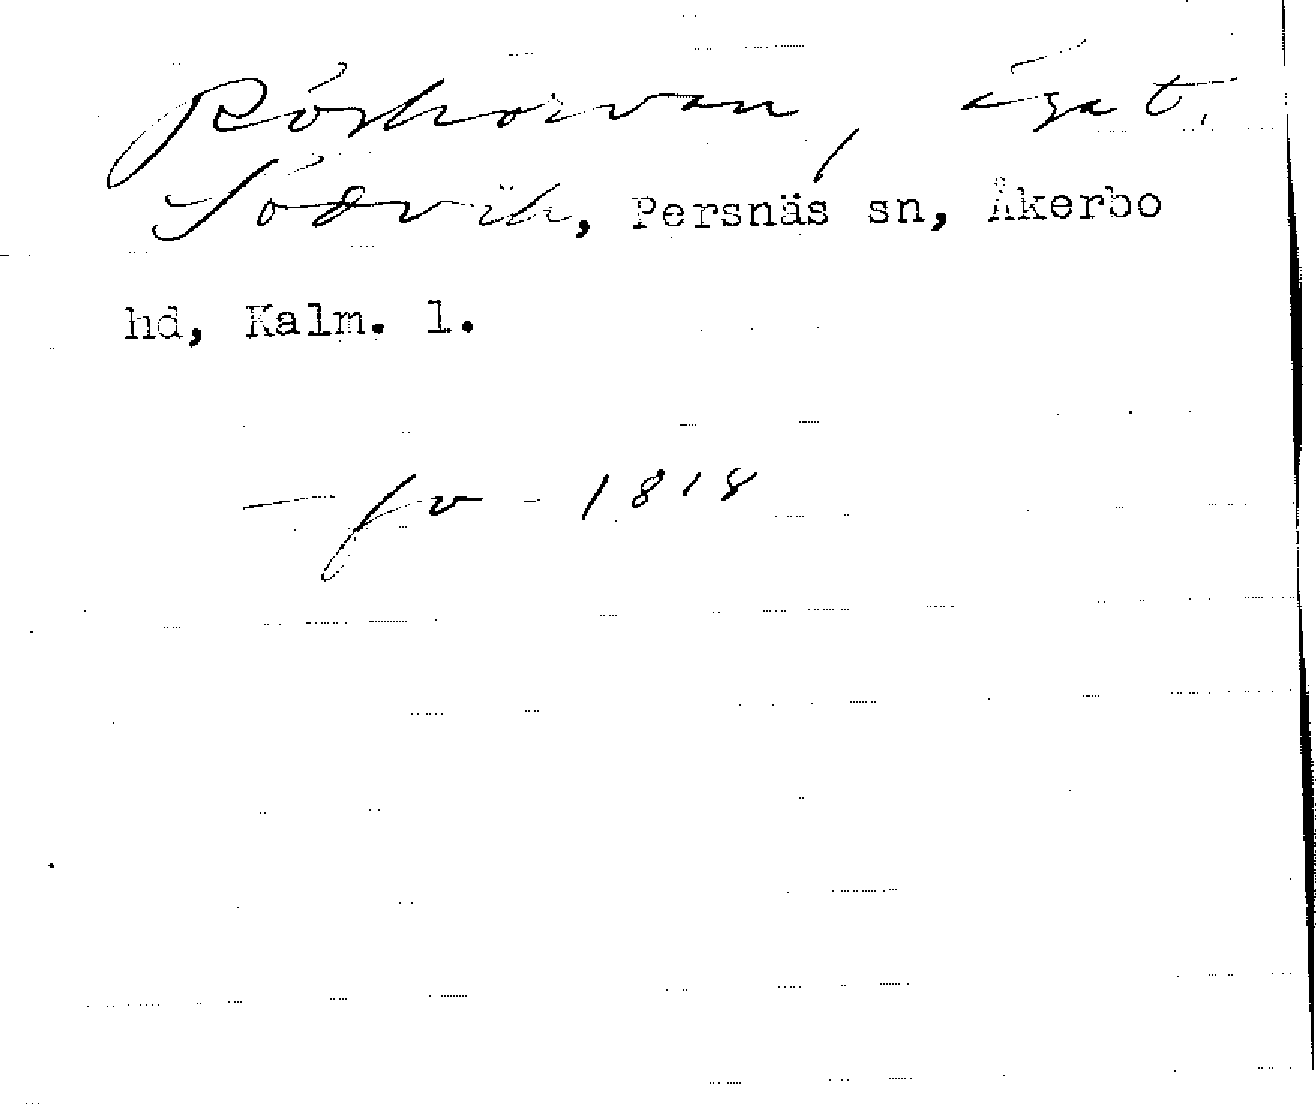 Rörhorvan, ägat.
Södvik, Persnäs sn, Åkerbo
hd, Kalm. l.
— fv - 1818